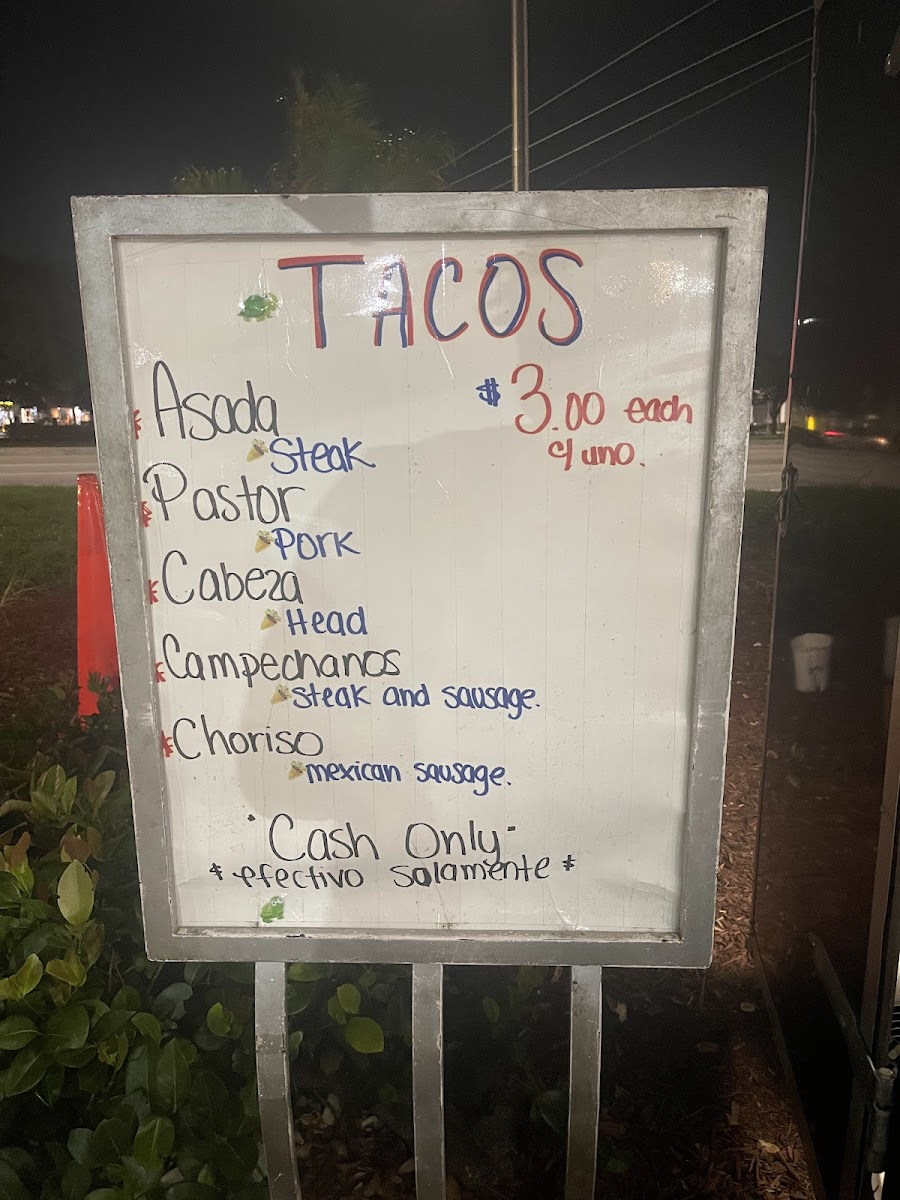 TACOS
* Asada $3.00 each
Steak c/uno.
* Pastor
Pork
* Cabeza
Head
* Campechanos
steak and sausage.
* Choriso
mexican sausage.
"Cash Only"
* efectivo solamente *